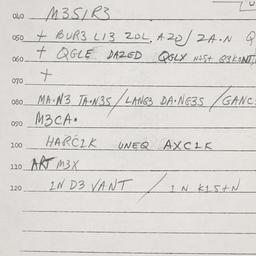 040 M3SIR3
050 + BUR3 L13 2OL, A2D/ 2A.N Q
060 + QGLE DAZED QGLX
070 +
080 MA.N3 TA.N3S/LANG3 DA.NE3S/GANC
090 M3CA.
100 HARC2K UNEQ AXC2K
110 ART M3X
120 1N D3 VANT / 1N K1S+N